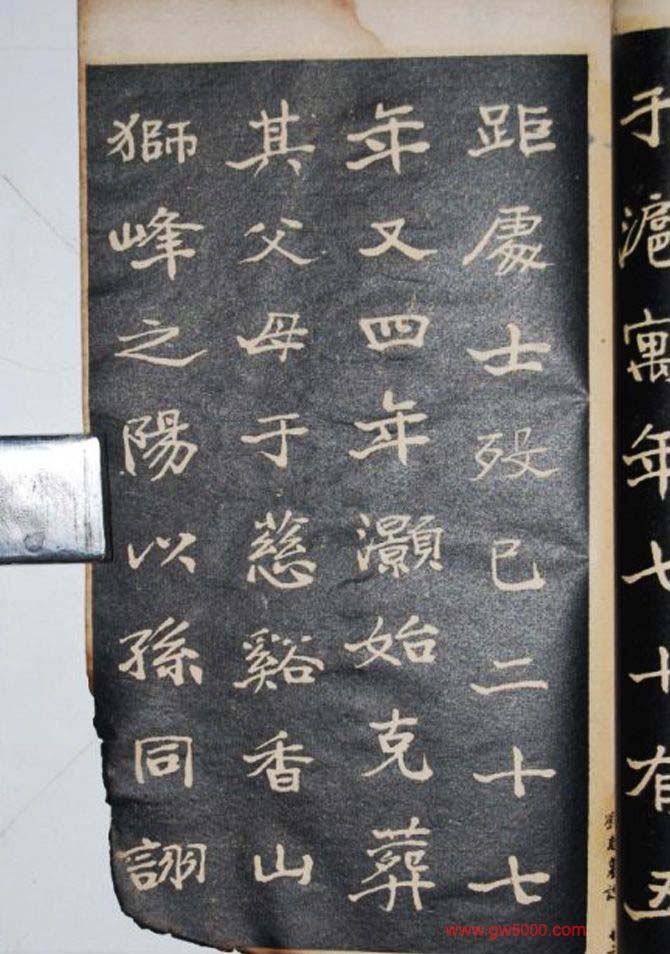 于滬寓年七十有五
距處士歿已二十七
年又四年灝始克葬
其父母于慈谿香山
獅峰之陽以孫同詡
www.gw5000.com